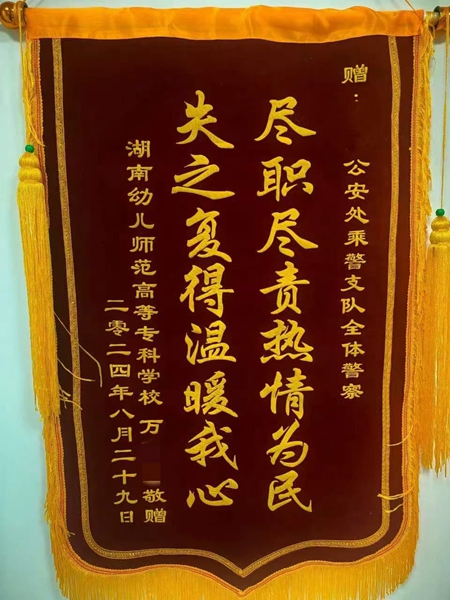 赠:
公安处乘警支队全体警察
尽职尽责热情为民
失之复得温暖我心
湖南幼儿师范高等专科学校 万 敬赠
二零二四年八月二十九日